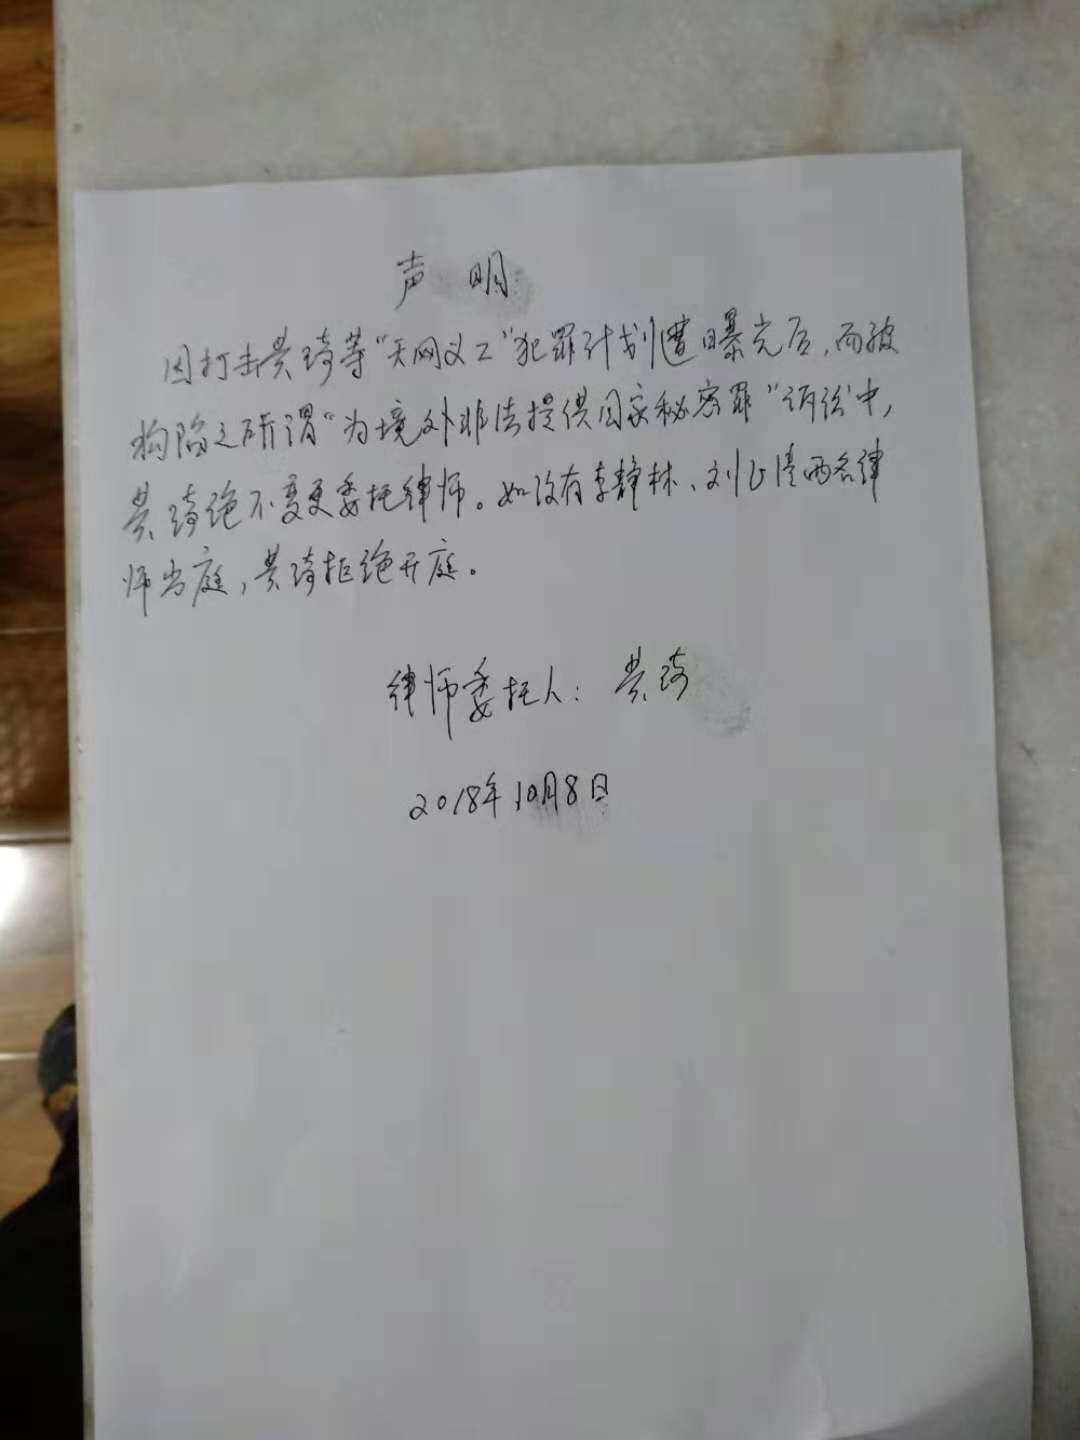 声 明
因打击黄琦等"天网义工"犯罪计划遭曝光后,而被
构陷之所谓"为境外非法提供国家秘密罪"诉讼中,
黄琦绝不变更委托律师。如没有李静林、刘正清两名律
师当庭,黄琦拒绝开庭。
律师委托人:黄琦
2018年10月8日